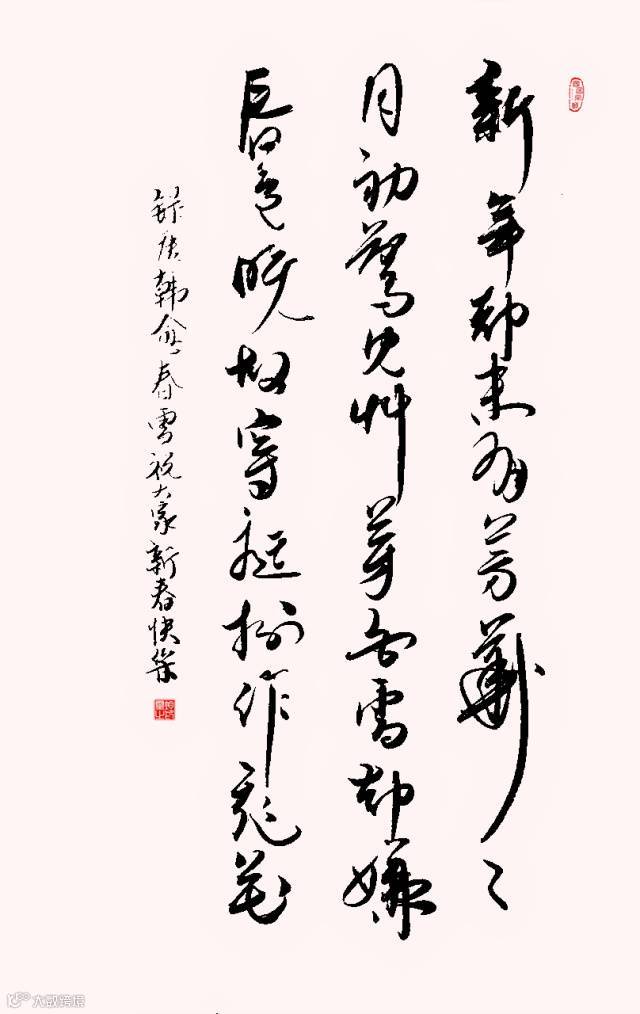 新年都未有芳華二
月初驚見艸芽白雪却嫌
春色晚故穿庭樹作飛花
録唐韓愈春雪祝大家新春快樂
大数跨境